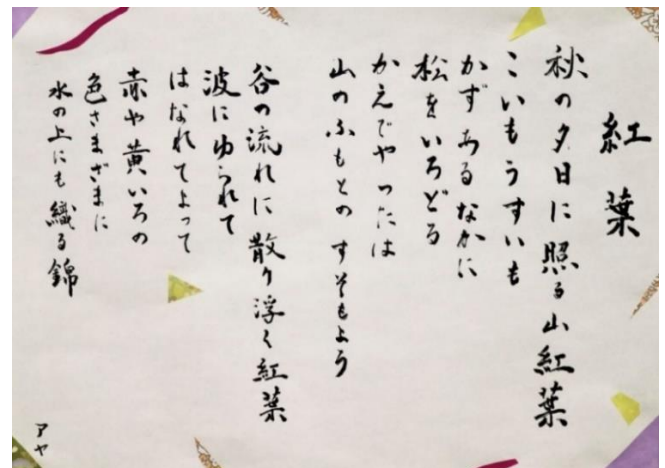 紅葉
秋の夕日に照る山紅葉
こいもうすいも
かずあるなかに
松をいろどる
かえでやつたは
山のふもとのすそもよう
谷の流れに散り浮く紅葉
波にゆられて
はなれてよって
赤や黄いろの
色さまざまに
水の上にも織る錦
アヤ